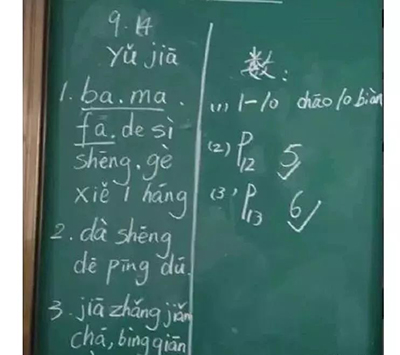 9.14
yǔ jiā
1. ba. ma.
fā. de sì
shēng. gè
xiě 1 háng
2. dà shēng
dē pīng dú.
3. jiā zhǎng jiǎn
chá, bìng qiān
数:
(1) 1-10 chāo 10 biàn
(2) P12 5
(3) P13 6